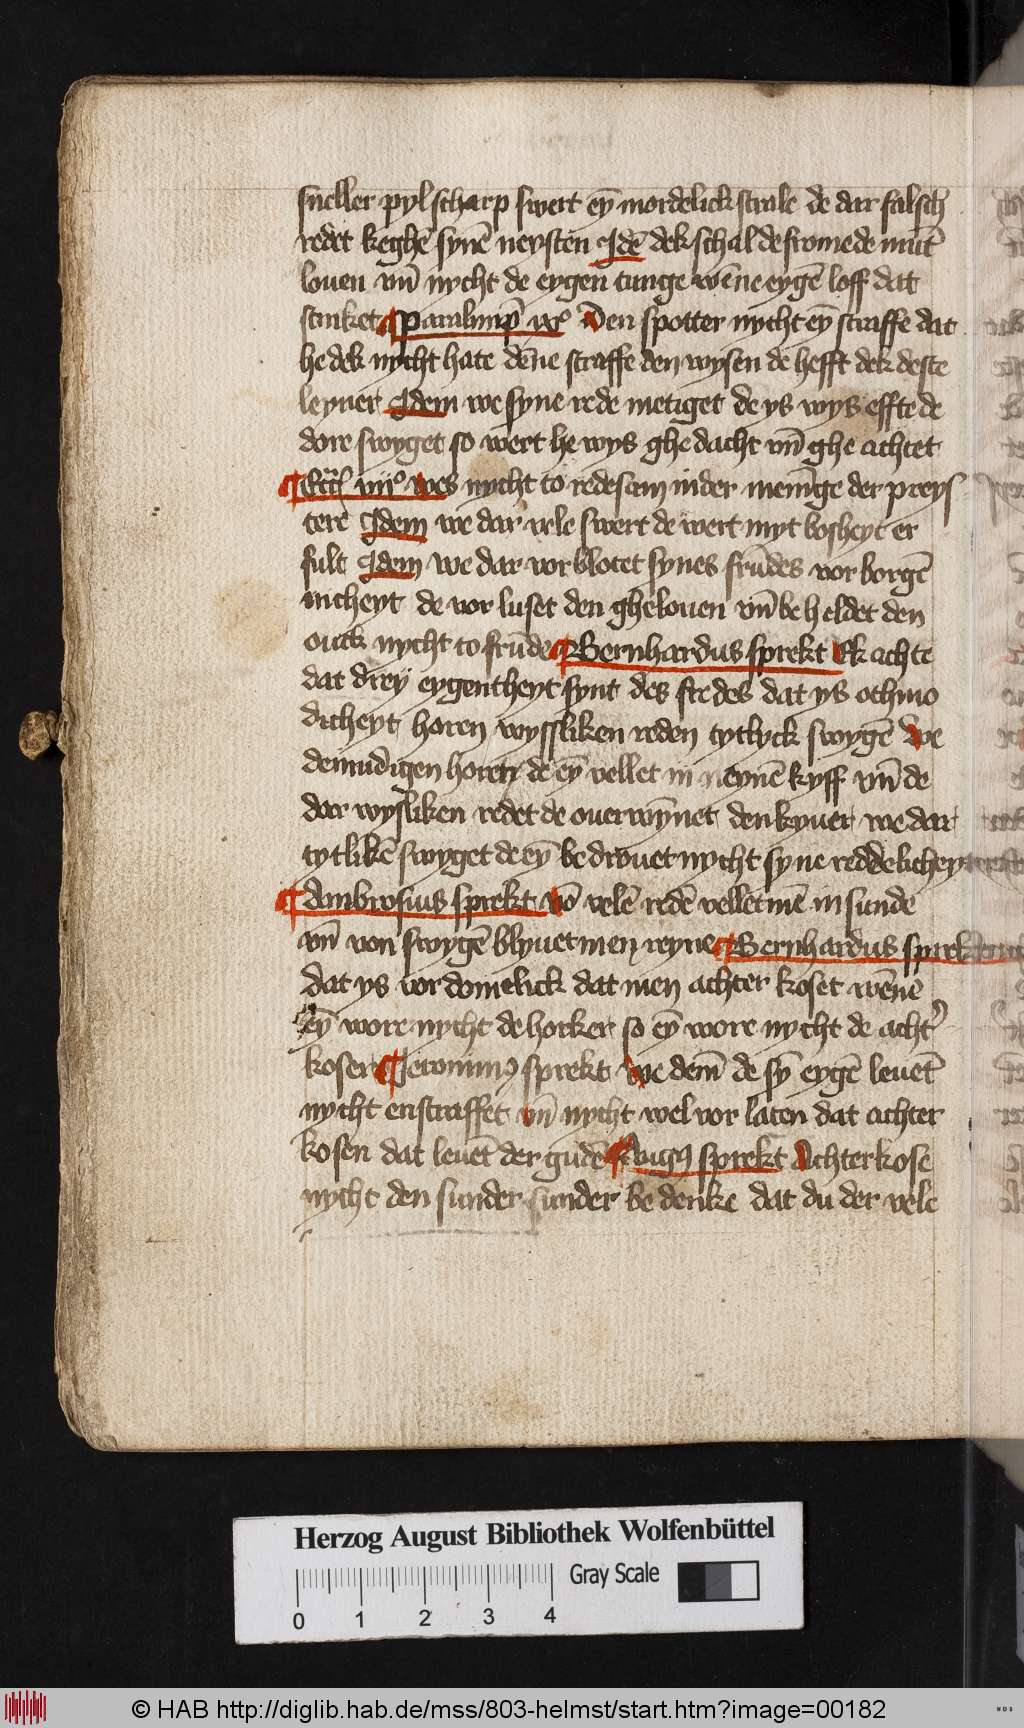 sneller pyl scharp swert eȳ mordelick strale de dar falsch
redet keghē synē neysten Idē dek schal de fromede mut̄
louen vn̄ nycht de eygen tunge wēne eygē loff dat
stinket ¶ den spotter nycht eȳ straffe dat
he dek nycht hate dēne straffe den wysen de hefft dek deste
leyuer Idem we syne rede metiget de ys wys effte de
dore swyget so wert he wys ghe dacht vn̄ ghe achtet
¶ viij° wes nycht to redesam in der menīge der preys
terē Idem we dar vele swert de wert myt bosheyt er
fult Idem we dar vor blotet synes frūdes vor borgē
incheyt de vor luset den ghelouen vn̄ be heldet den
ouck nycht to frūde ¶ Bernhardus sprekt Ek achte
dat drey eygentheyt synt des stedes dat ys othmo
dicheyt horen wyssliken reden tytlyck swygē We
demudigen horet de eȳ vellet in neynē kyff vn̄ de
dar wysliken redet de ouerwȳnet den kyuer we dar
tytlikē swyget de eȳ be drouet nycht syne reddelicheyt
¶ Ambrosius sprekt vō velē redē vellet mē in sunde
vn̄ von swygē blyuet men reyne ¶ Bernhardus sprekt
dat ys vordomelick dat men achter koset wēne
eȳ wore nycht de horker so eȳ wore nycht de acht᷑
koser ¶ Jeronimꝰ sprekt we dem̄ de sȳ eygē leuet̄
nycht enstraffet vn̄ nycht wel vor laten dat achter
kosen dat leuet̄ der gudē ¶ Augꝰ sprekt Achterkose
nycht den sunder sunder be denke dat du der vele
Herzog August Bibliothek Wolfenbüttel
Gray Scale
0 1 2 3 4
© HAB http://diglib.hab.de/mss/803-helmst/start.htm?image=00182